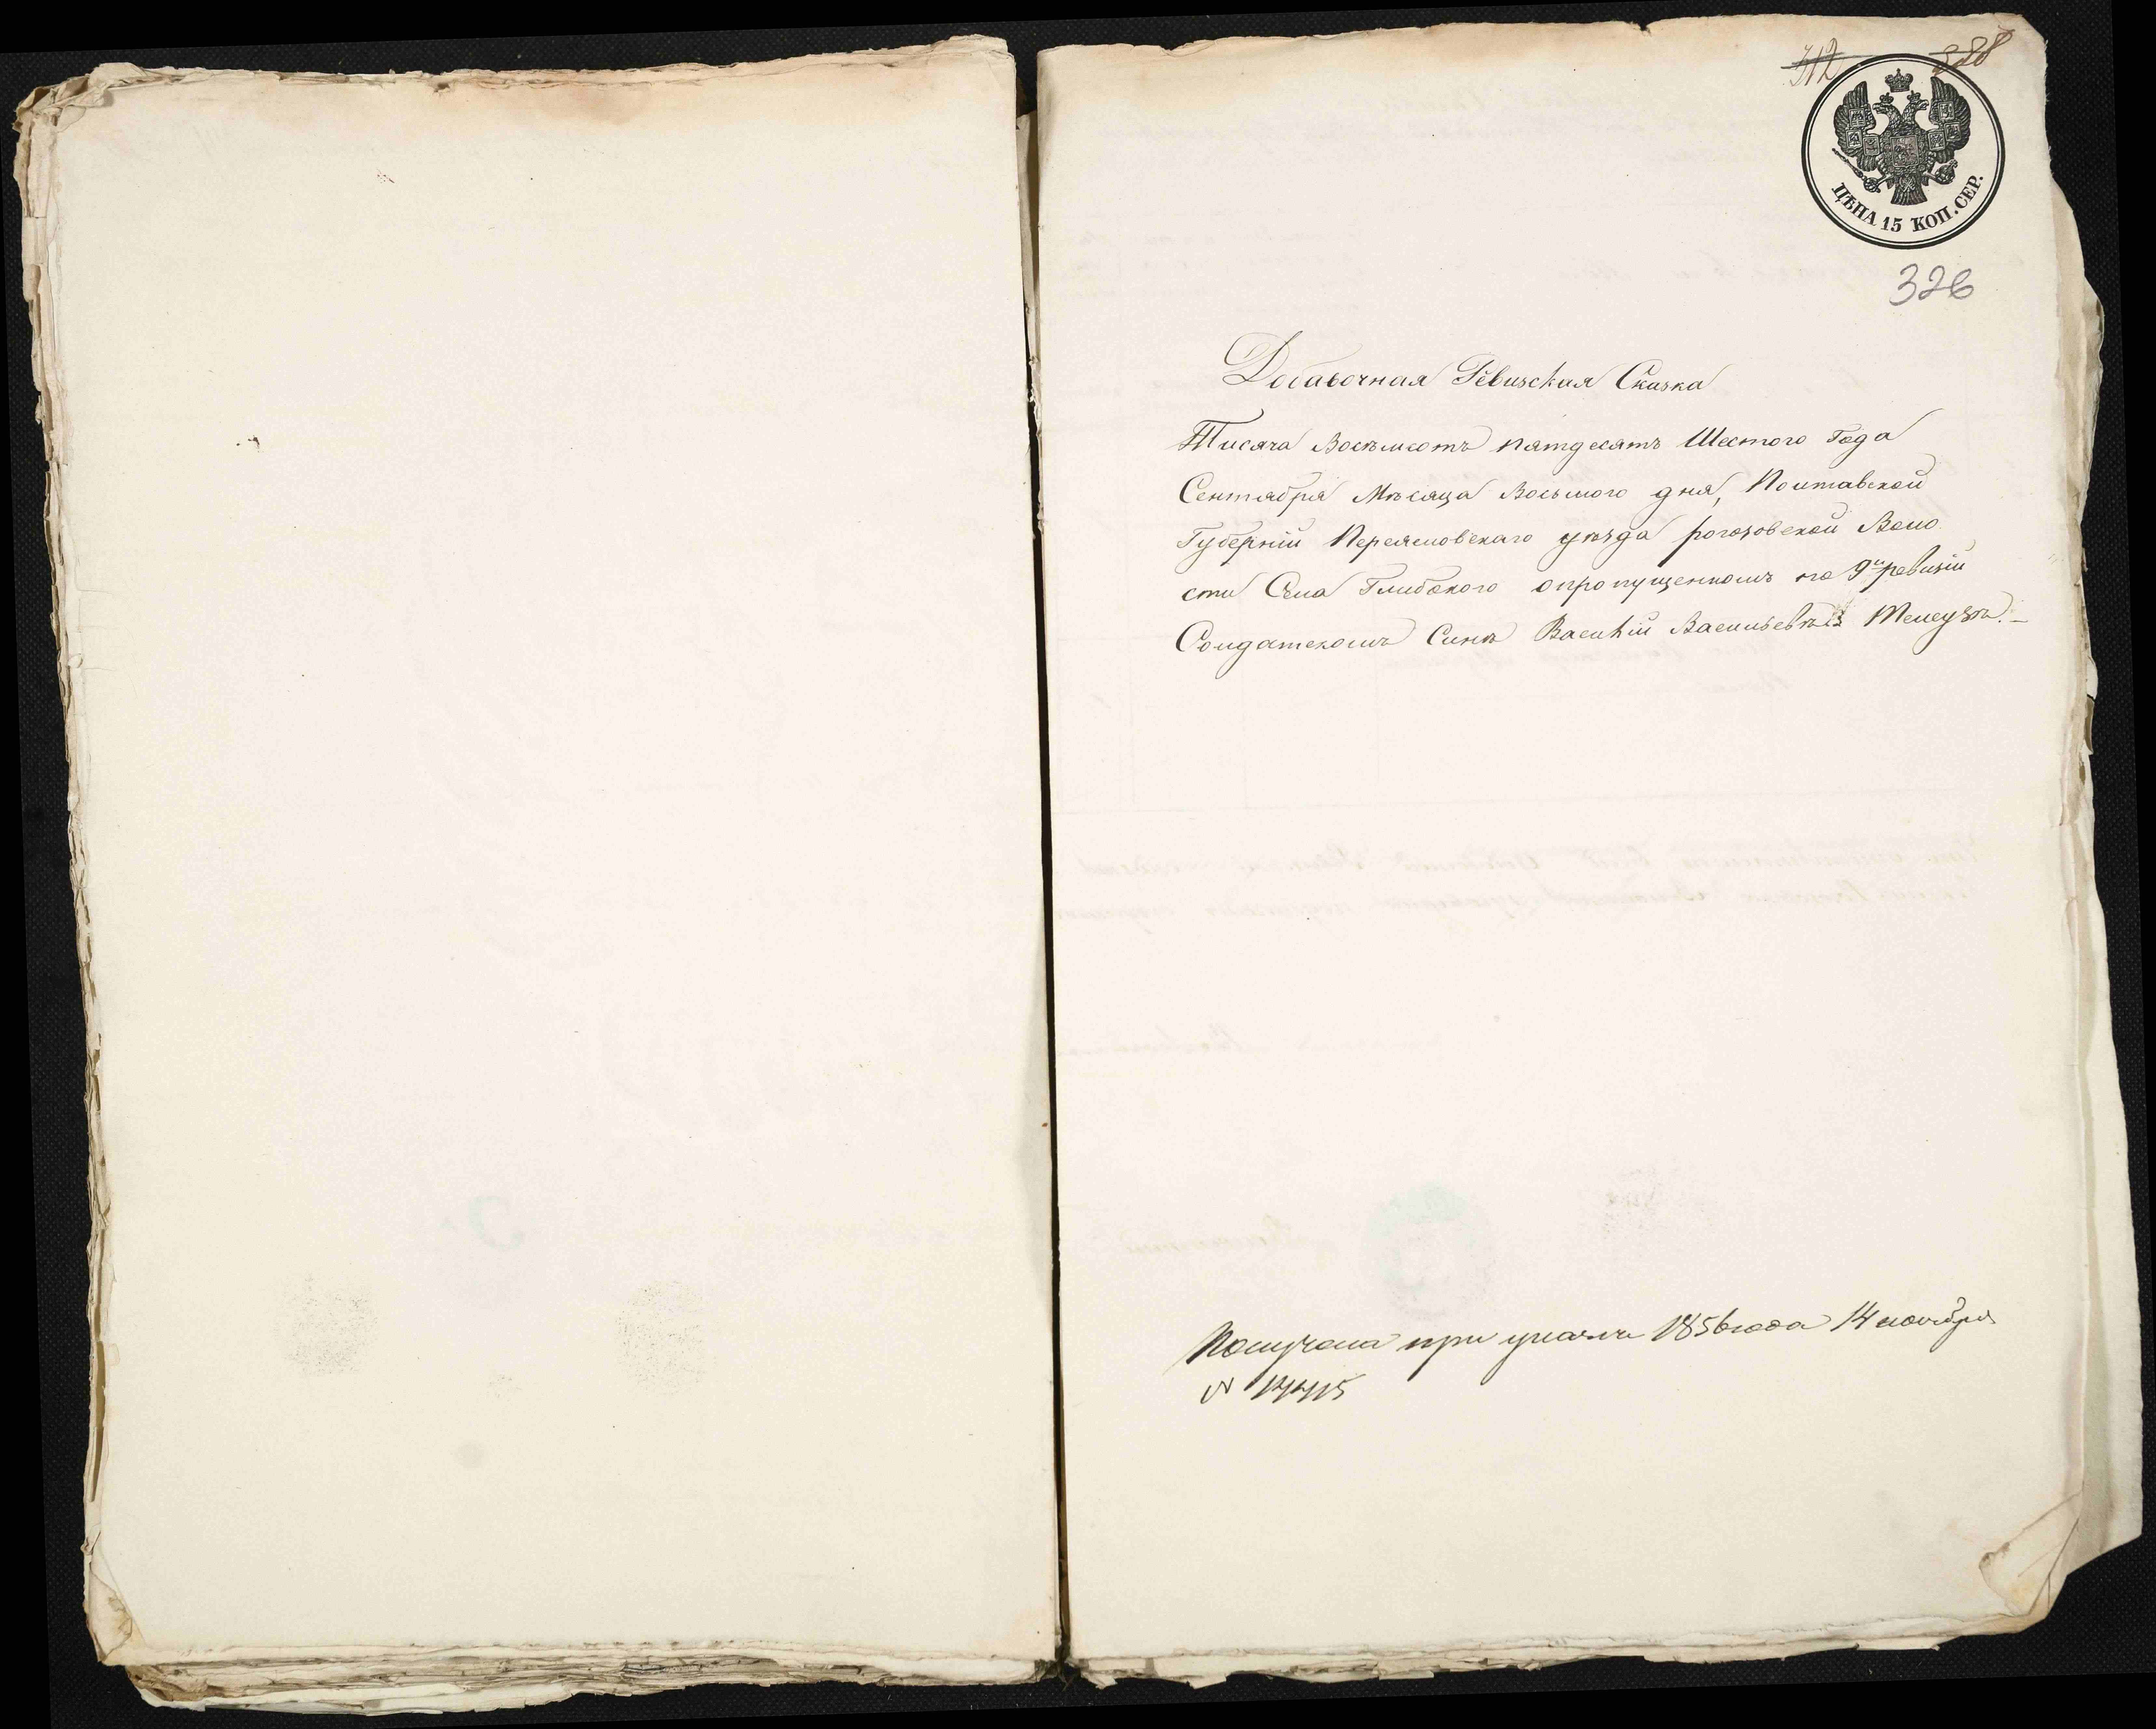 312 328
ЦѢНА 15 КОП. СЕР.
326
Добавочная Ревизская Сказка
Тисяча Восѣмсотъ пятдесятъ Шестого Года
Сентября Мѣсяца Восьмого дня, Полтавской
Губерніи Переясловскаго уѣзда рогозовской Воло
сти Села Глибокого опропущенномъ по 9й ревизіи
Солдатскомъ Синѣ Василій Васильевѣ
Получена при указѣ 1856 года 14 ноября